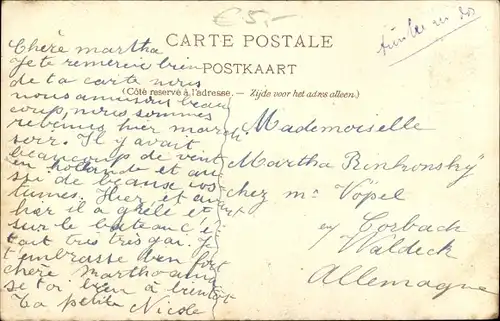 €5,-
CARTE POSTALE
POSTKAART
(Côté reservé à l'adresse. – Zijde voor het adres alleen.)
Chère martha
Je te remercie bien
de ta carte nous
nous amusons beau
coup, nous sommes
revenus hier march
soir. Il y avait
beaucoup de vent
en hollande et au
ssi de beause cos
tumes. Hier et avant
hier il a grêlé et
sur le bateau c'
tait très très gai. Je
t'embrasse bien fort
chère martha
se toi bien à bientôt
Ta petite Nicole
Mademoiselle
Martha
chez mr Vöpel
Corbach
Waldeck
Allemagne